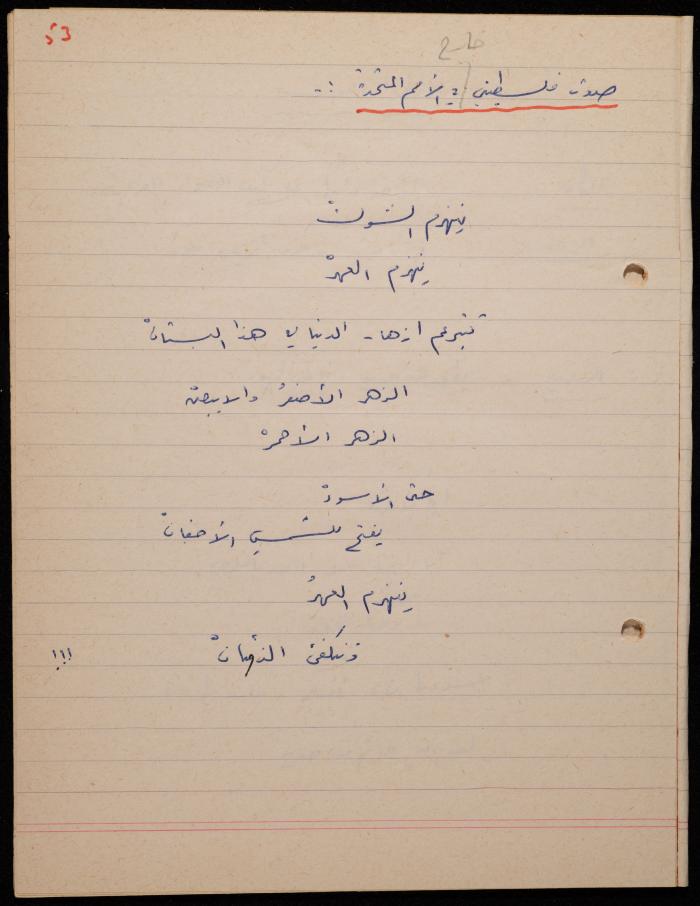 ٥٣
خارج
صوت فلسطيني في الأمم المتحدة :-
ينهزم الشوكْ
ينهزم العهرْ
تتبرعم ازهار الدنيا في هذا البستانْ
الزهر الأصفرُ والابيضْ
الزهر الأحمرْ
حتى الأسودْ
يفتح للشمس الأجفانْ
ينهزم العهرُ
وتنكفئ الذؤبانْ !!!